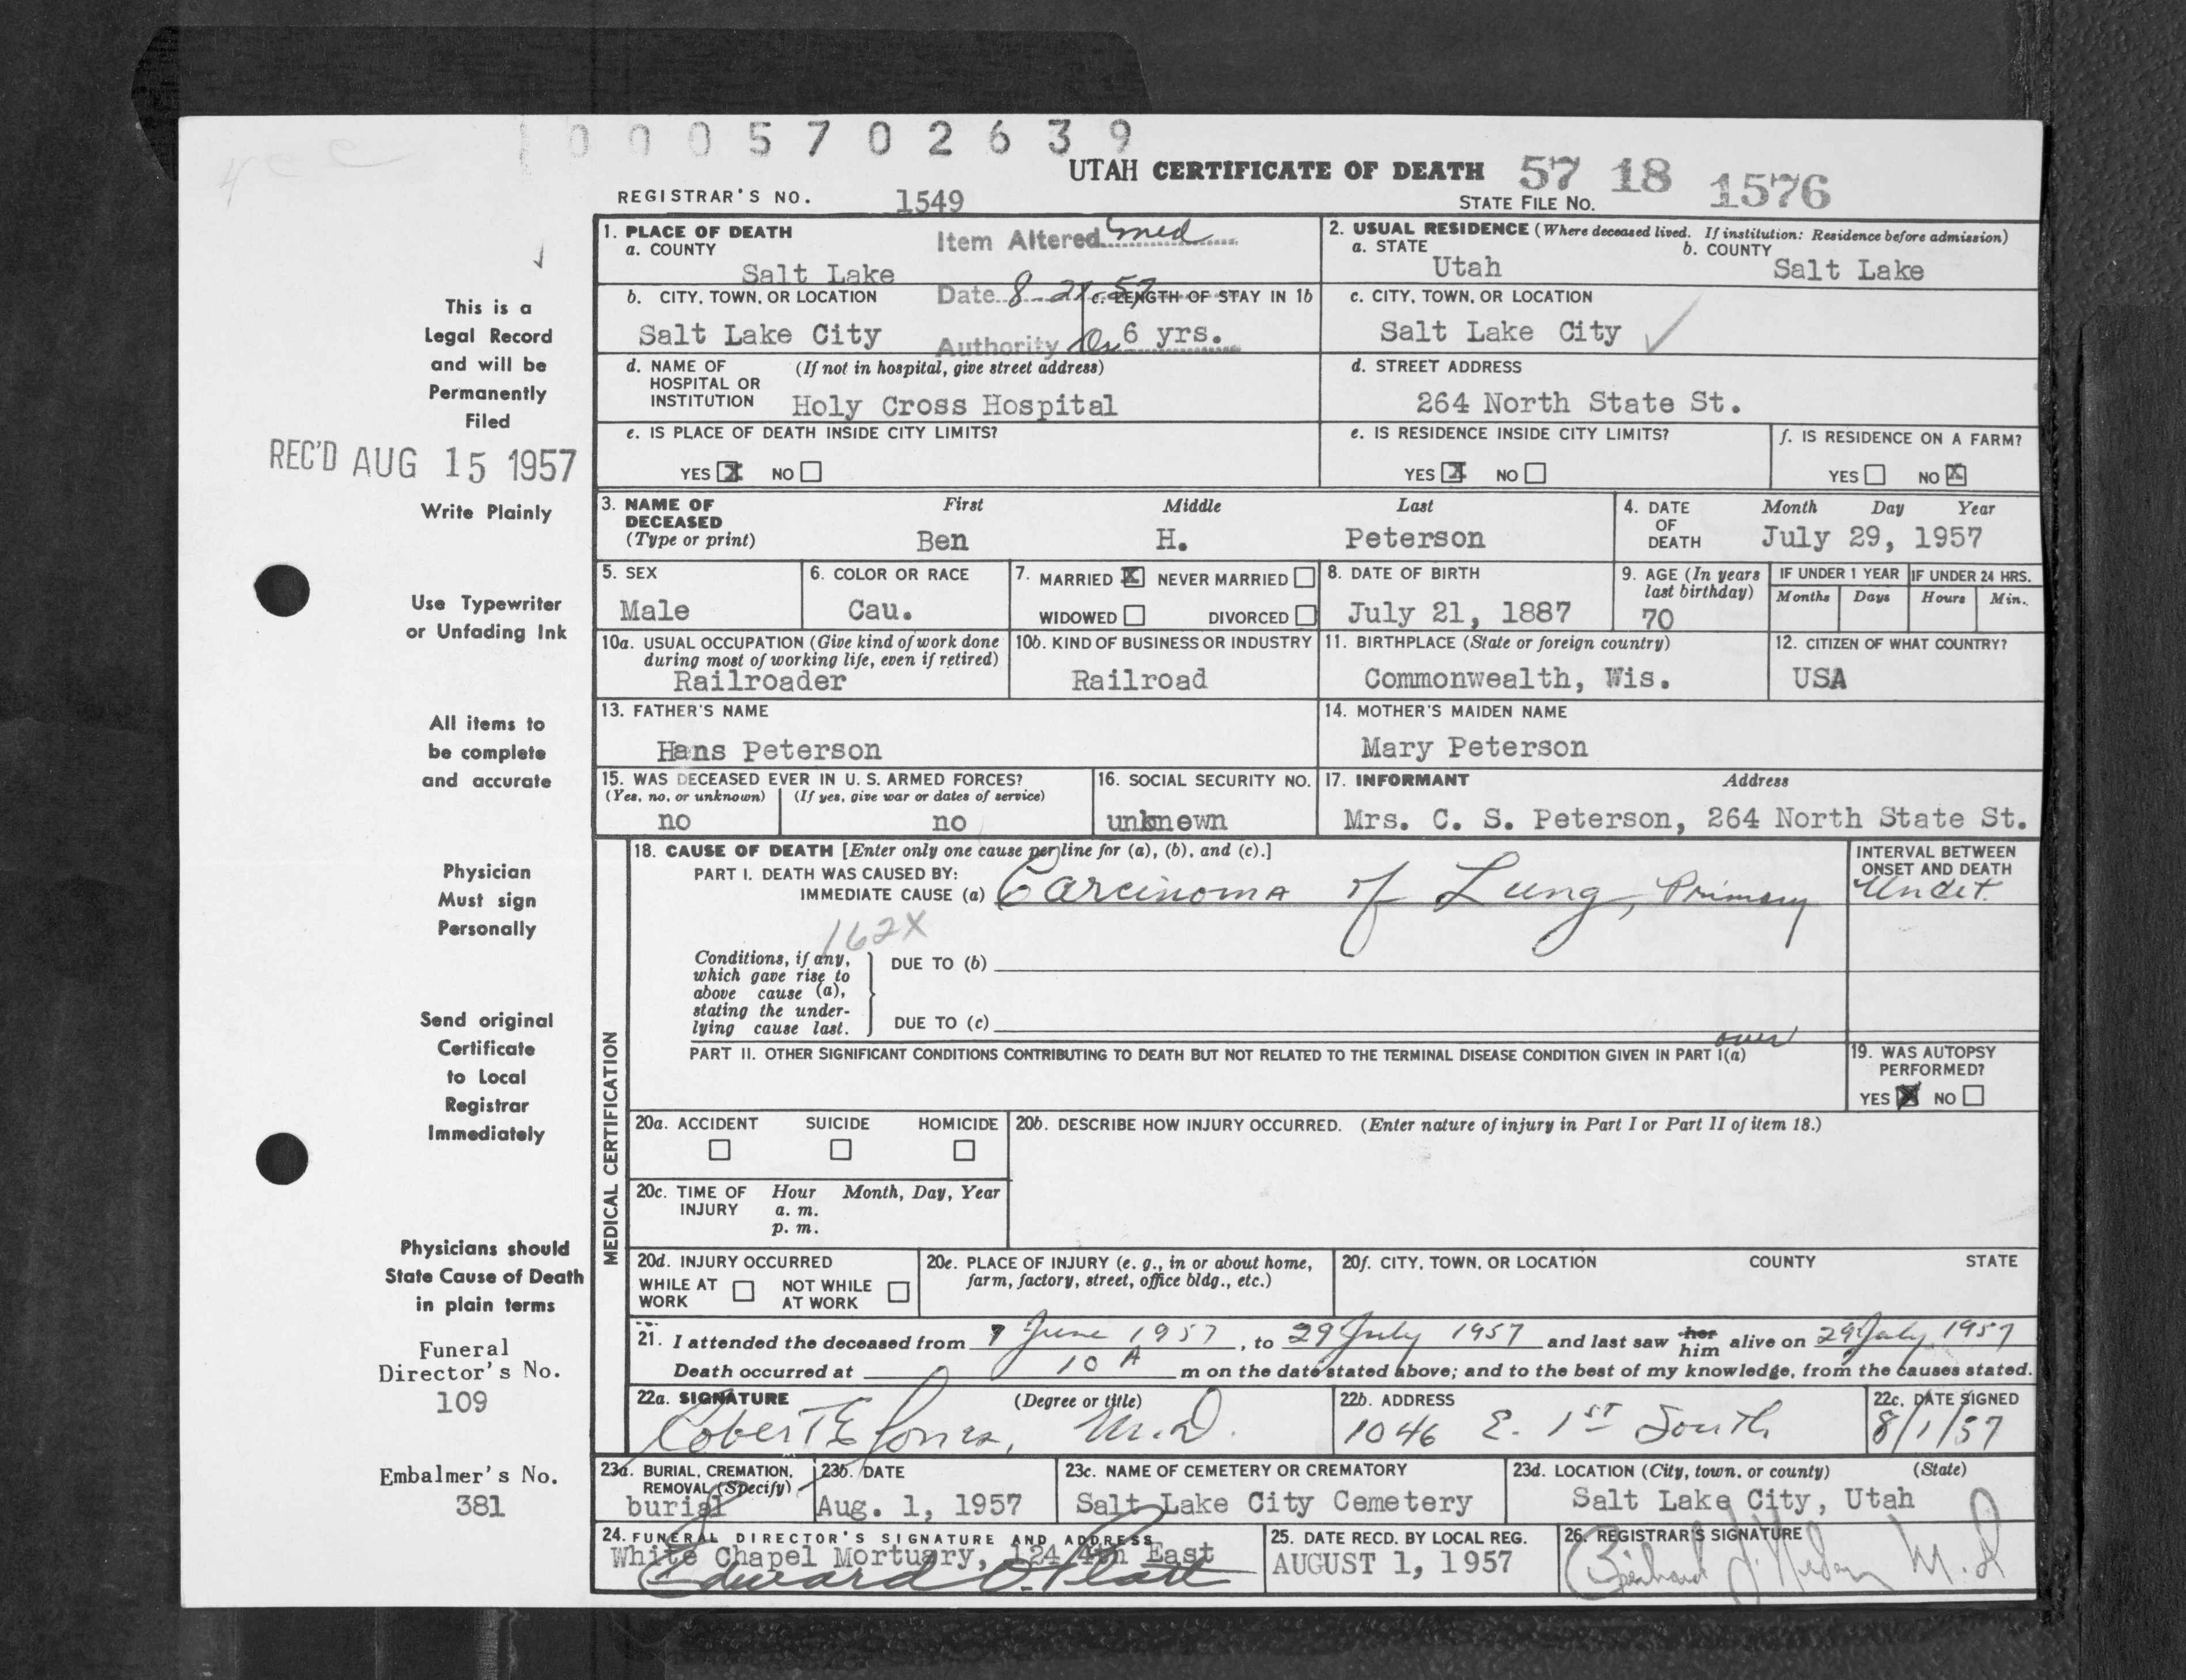 1 0 0 0 5 7 0 2 6 3 9
UTAH CERTIFICATE OF DEATH 57 18 1576
REGISTRAR'S NO. 1549 STATE FILE NO.
1. PLACE OF DEATH
a. COUNTY
Salt Lake
Item Altered
Date 8-21-57
Authority
2. USUAL RESIDENCE (Where deceased lived. If institution: Residence before admission)
a. STATE b. COUNTY
Utah Salt Lake
b. CITY, TOWN, OR LOCATION
Salt Lake City
c. LENGTH OF STAY IN 1b
6 yrs.
c. CITY, TOWN, OR LOCATION
Salt Lake City
d. NAME OF (If not in hospital, give street address)
HOSPITAL OR
INSTITUTION Holy Cross Hospital
d. STREET ADDRESS
264 North State St.
e. IS PLACE OF DEATH INSIDE CITY LIMITS?
YES X NO
e. IS RESIDENCE INSIDE CITY LIMITS?
YES X NO
f. IS RESIDENCE ON A FARM?
YES NO X
3. NAME OF First Middle Last
DECEASED
(Type or print) Ben H. Peterson
4. DATE Month Day Year
OF
DEATH July 29, 1957
5. SEX
Male
6. COLOR OR RACE
Cau.
7. MARRIED X NEVER MARRIED
WIDOWED DIVORCED
8. DATE OF BIRTH
July 21, 1887
9. AGE (In years
last birthday)
70
IF UNDER 1 YEAR
Months Days
IF UNDER 24 HRS.
Hours Min.
10a. USUAL OCCUPATION (Give kind of work done
during most of working life, even if retired)
Railroader
10b. KIND OF BUSINESS OR INDUSTRY
Railroad
11. BIRTHPLACE (State or foreign country)
Commonwealth, Wis.
12. CITIZEN OF WHAT COUNTRY?
USA
13. FATHER'S NAME
Hans Peterson
14. MOTHER'S MAIDEN NAME
Mary Peterson
15. WAS DECEASED EVER IN U. S. ARMED FORCES?
(Yes, no, or unknown) (If yes, give war or dates of service)
no no
16. SOCIAL SECURITY NO.
unknown
17. INFORMANT Address
Mrs. C. S. Peterson, 264 North State St.
MEDICAL CERTIFICATION
18. CAUSE OF DEATH [Enter only one cause per line for (a), (b), and (c).]
PART I. DEATH WAS CAUSED BY:
IMMEDIATE CAUSE (a) Carcinoma of Lung, Primary
INTERVAL BETWEEN
ONSET AND DEATH
Undet.
162X
Conditions, if any,
which gave rise to
above cause (a),
stating the under-
lying cause last.
DUE TO (b)
DUE TO (c)
over
PART II. OTHER SIGNIFICANT CONDITIONS CONTRIBUTING TO DEATH BUT NOT RELATED TO THE TERMINAL DISEASE CONDITION GIVEN IN PART I(a)
19. WAS AUTOPSY
PERFORMED?
YES X NO
20a. ACCIDENT SUICIDE HOMICIDE
20b. DESCRIBE HOW INJURY OCCURRED. (Enter nature of injury in Part I or Part II of item 18.)
20c. TIME OF Hour Month, Day, Year
INJURY a. m.
p. m.
20d. INJURY OCCURRED
WHILE AT NOT WHILE
WORK AT WORK
20e. PLACE OF INJURY (e. g., in or about home,
farm, factory, street, office bldg., etc.)
20f. CITY, TOWN, OR LOCATION COUNTY STATE
21. I attended the deceased from 7 June 1957, to 29 July 1957 and last saw her him alive on 29 July 1957
Death occurred at 10 A m on the date stated above; and to the best of my knowledge, from the causes stated.
22a. SIGNATURE (Degree or title)
Robert E Jones, M.D.
22b. ADDRESS
1046 E. 1st South
22c. DATE SIGNED
8/1/57
23a. BURIAL, CREMATION,
REMOVAL (Specify)
burial
23b. DATE
Aug. 1, 1957
23c. NAME OF CEMETERY OR CREMATORY
Salt Lake City Cemetery
23d. LOCATION (City, town, or county) (State)
Salt Lake City, Utah
24. FUNERAL DIRECTOR'S SIGNATURE AND ADDRESS
White Chapel Mortuary, 124 4th East
Edward
25. DATE RECD. BY LOCAL REG.
AUGUST 1, 1957
26. REGISTRAR'S SIGNATURE
M.D
This is a
Legal Record
and will be
Permanently
Filed
REC'D AUG 15 1957
Write Plainly
Use Typewriter
or Unfading Ink
All items to
be complete
and accurate
Physician
Must sign
Personally
Send original
Certificate
to Local
Registrar
Immediately
Physicians should
State Cause of Death
in plain terms
Funeral
Director's No.
109
Embalmer's No.
381